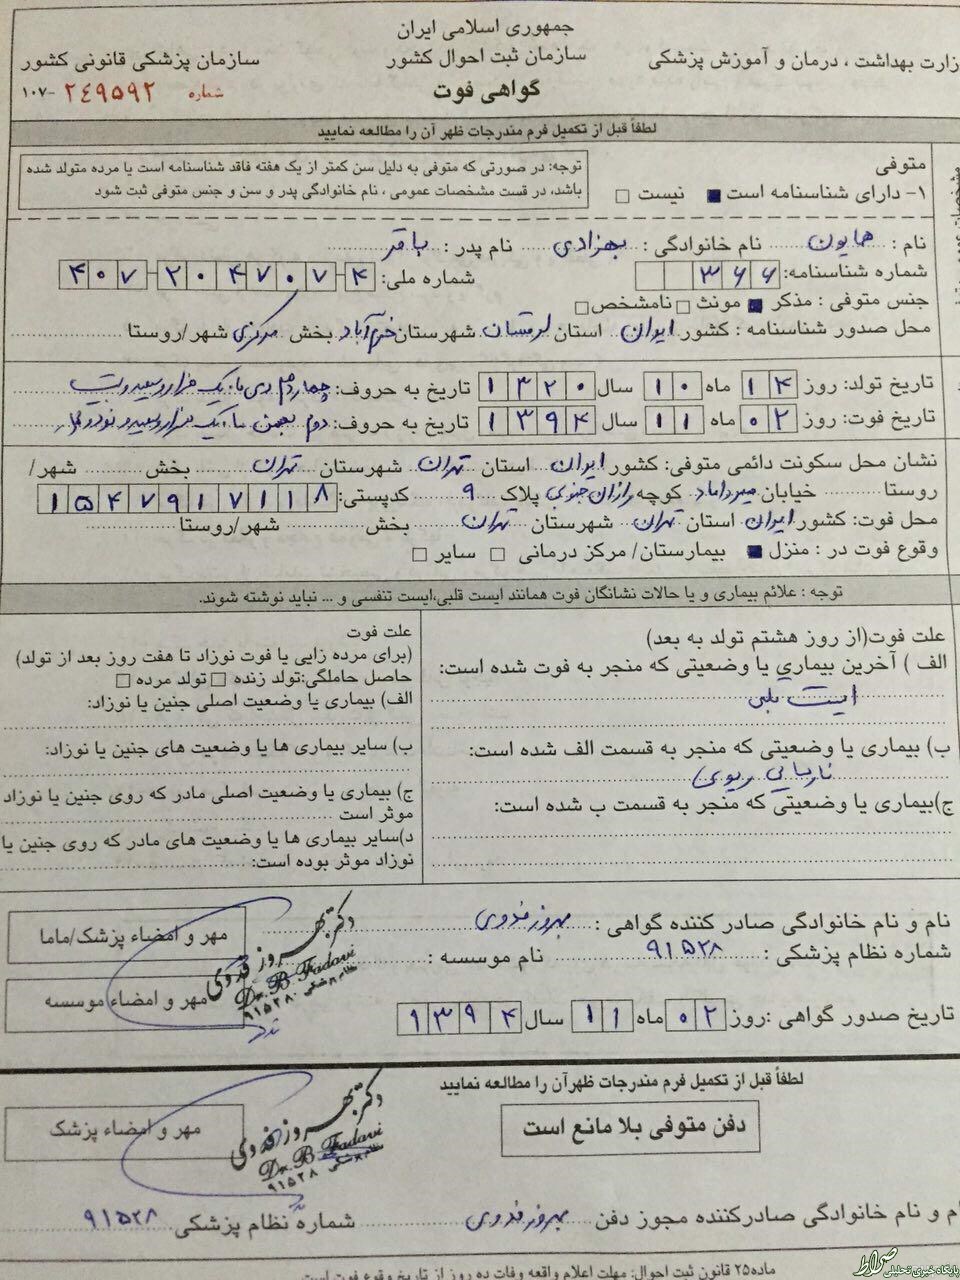 جمهوری اسلامی ایران
وزارت بهداشت ، درمان و آموزش پزشکی سازمان ثبت احوال کشور سازمان پزشکی قانونی کشور
گواهی فوت شماره ۲۴۹۵۹۲ -۱۰۷
لطفاً قبل از تکمیل فرم مندرجات ظهر آن را مطالعه نمایید
متوفی
۱- دارای شناسنامه است نیست
توجه: در صورتی که متوفی به دلیل سن کمتر از یک هفته فاقد شناسنامه است یا مرده متولد شده
باشد، در قست مشخصات عمومی ، نام خانوادگی پدر و سن و جنس متوفی ثبت شود
نام : همایون نام خانوادگی : بهزادی نام پدر : باقر
شماره شناسنامه: ۳۶۶ شماره ملی: ۴۰۷-۲۰۴۷۰۷-۴
جنس متوفی : مذکر مونث نامشخص
محل صدور شناسنامه : کشور ایران استان لرستان شهرستان خرم‌آباد بخش مرکزی شهر/روستا
تاریخ تولد: روز ۱۴ ماه ۱۰ سال ۱۳۲۰ تاریخ به حروف: چهاردهم دی ماه یک هزار و سیصد و بیست
تاریخ فوت: روز ۰۲ ماه ۱۱ سال ۱۳۹۴ تاریخ به حروف: دوم بهمن ماه یک هزار و سیصد و نود و چهار
نشان محل سکونت دائمی متوفی: کشور ایران استان تهران شهرستان تهران بخش شهر/
روستا خیابان میرداماد کوچه رازان جنوبی پلاک ۹ کدپستی: ۱۵۴۷۹۱۷۱۱۸
محل فوت: کشور ایران استان تهران شهرستان تهران بخش شهر/روستا
وقوع فوت در : منزل بیمارستان/ مرکز درمانی سایر
توجه : علائم بیماری و یا حالات نشانگان فوت همانند ایست قلبی،ایست تنفسی و ... نباید نوشته شوند.
علت فوت(از روز هشتم تولد به بعد)
الف ) آخرین بیماری یا وضعیتی که منجر به فوت شده است:
ایست قلبی
ب) بیماری یا وضعیتی که منجر به قسمت الف شده است:
نارسایی ریوی
ج)بیماری یا وضعیتی که منجر به قسمت ب شده است:
علت فوت
(برای مرده زایی یا فوت نوزاد تا هفت روز بعد از تولد)
حاصل حاملگی:تولد زنده تولد مرده
الف) بیماری یا وضعیت اصلی جنین یا نوزاد:
ب) سایر بیماری ها یا وضعیت های جنین یا نوزاد:
ج) بیماری یا وضعیت اصلی مادر که روی جنین یا نوزاد
موثر است
د)سایر بیماری ها یا وضعیت های مادر که روی جنین یا
نوزاد موثر بوده است:
نام و نام خانوادگی صادر کننده گواهی : بهروز فدوی
شماره نظام پزشکی : ۹۱۵۲۸ نام موسسه :
مهر و امضاء پزشک/ماما
مهر و امضاء موسسه
دکتر بهروز فدوی
Dr. B Fadavi
نظام پزشکی ۹۱۵۲۸
تاریخ صدور گواهی :روز ۰۲ ماه ۱۱ سال ۱۳۹۴
لطفاً قبل از تکمیل فرم مندرجات ظهرآن را مطالعه نمایید
دفن متوفی بلا مانع است
مهر و امضاء پزشک
دکتر بهروز فدوی
Dr. B Fadavi
نظام پزشکی ۹۱۵۲۸
م و نام خانوادگی صادرکننده مجوز دفن بهروز فدوی شماره نظام پزشکی ۹۱۵۲۸
ماده۲۵ قانون ثبت احوال: مهلت اعلام واقعه وفات ده روز از تاریخ وقوع فوت است
صراط
پایگاه خبری تحلیلی